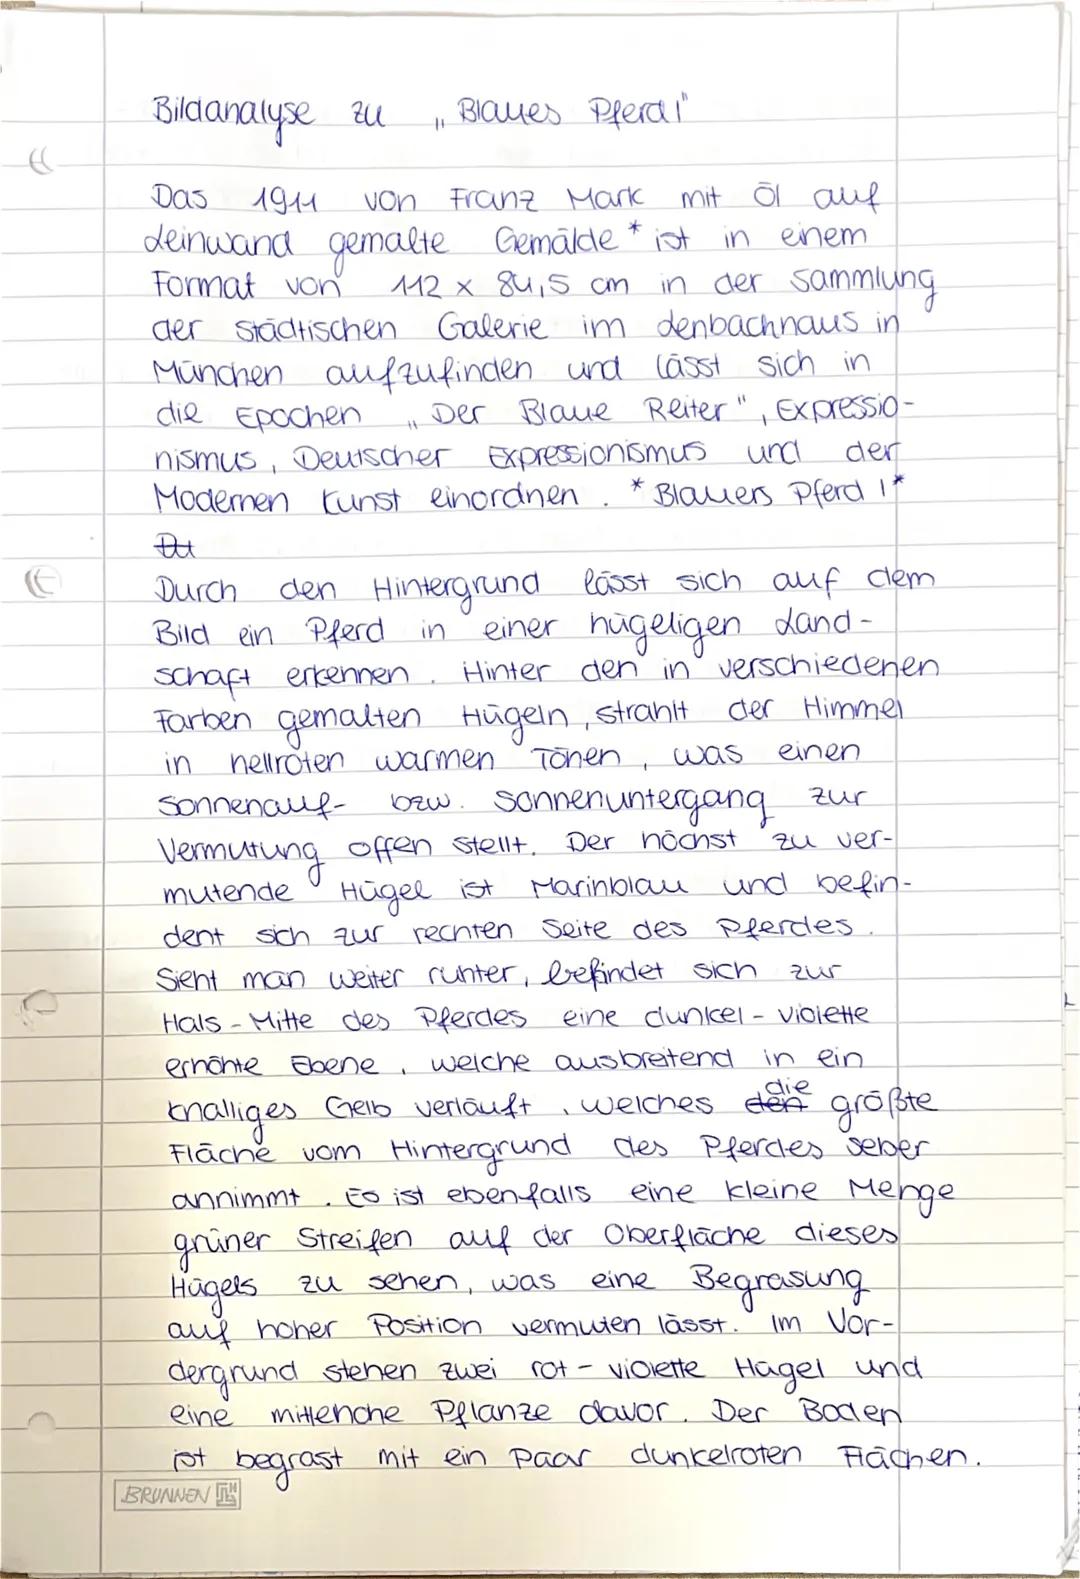 Bildanalyse zu „Blaues Pferd I"
Das 1911 von Franz Mark mit Öl auf
Leinwand gemalte Gemälde * ist in einem
Format von 112 x 84,5 cm in der Sammlung
der städtischen Galerie im Lenbachhaus in
München aufzufinden und lässt sich in
die Epochen „Der Blaue Reiter", Expressio-
nismus, Deutscher Expressionismus und der
Modernen Kunst einordnen. * Blauers Pferd I*
Du
Durch den Hintergrund lässt sich auf dem
Bild ein Pferd in einer hügeligen Land-
schaft erkennen. Hinter den in verschiedenen
Farben gemalten Hügeln, strahlt der Himmel
in hellroten warmen Tönen, was einen
Sonnenauf- bzw. Sonnenuntergang zur
Vermutung offen stellt. Der höchst zu ver-
mutende Hügel ist Marinblau und befin-
dent sich zur rechten Seite des Pferdes.
Sieht man weiter runter, befindet sich zur
Hals-Mitte des Pferdes eine dunkel-violette
erhöhte Ebene, welche ausbreitend in ein
knalliges Gelb verläuft, welches den die größte
Fläche vom Hintergrund des Pferdes selber
annimmt. Es ist ebenfalls eine kleine Menge
grüner Streifen auf der Oberfläche dieses
Hügels zu sehen, was eine Begrasung
auf hoher Position vermuten lässt. Im Vor-
dergrund stehen zwei rot-violette Hügel und
eine mittlehohe Pflanze davor. Der Boden
ist begrast mit ein paar dunkelroten Flächen.
BRUNNEN